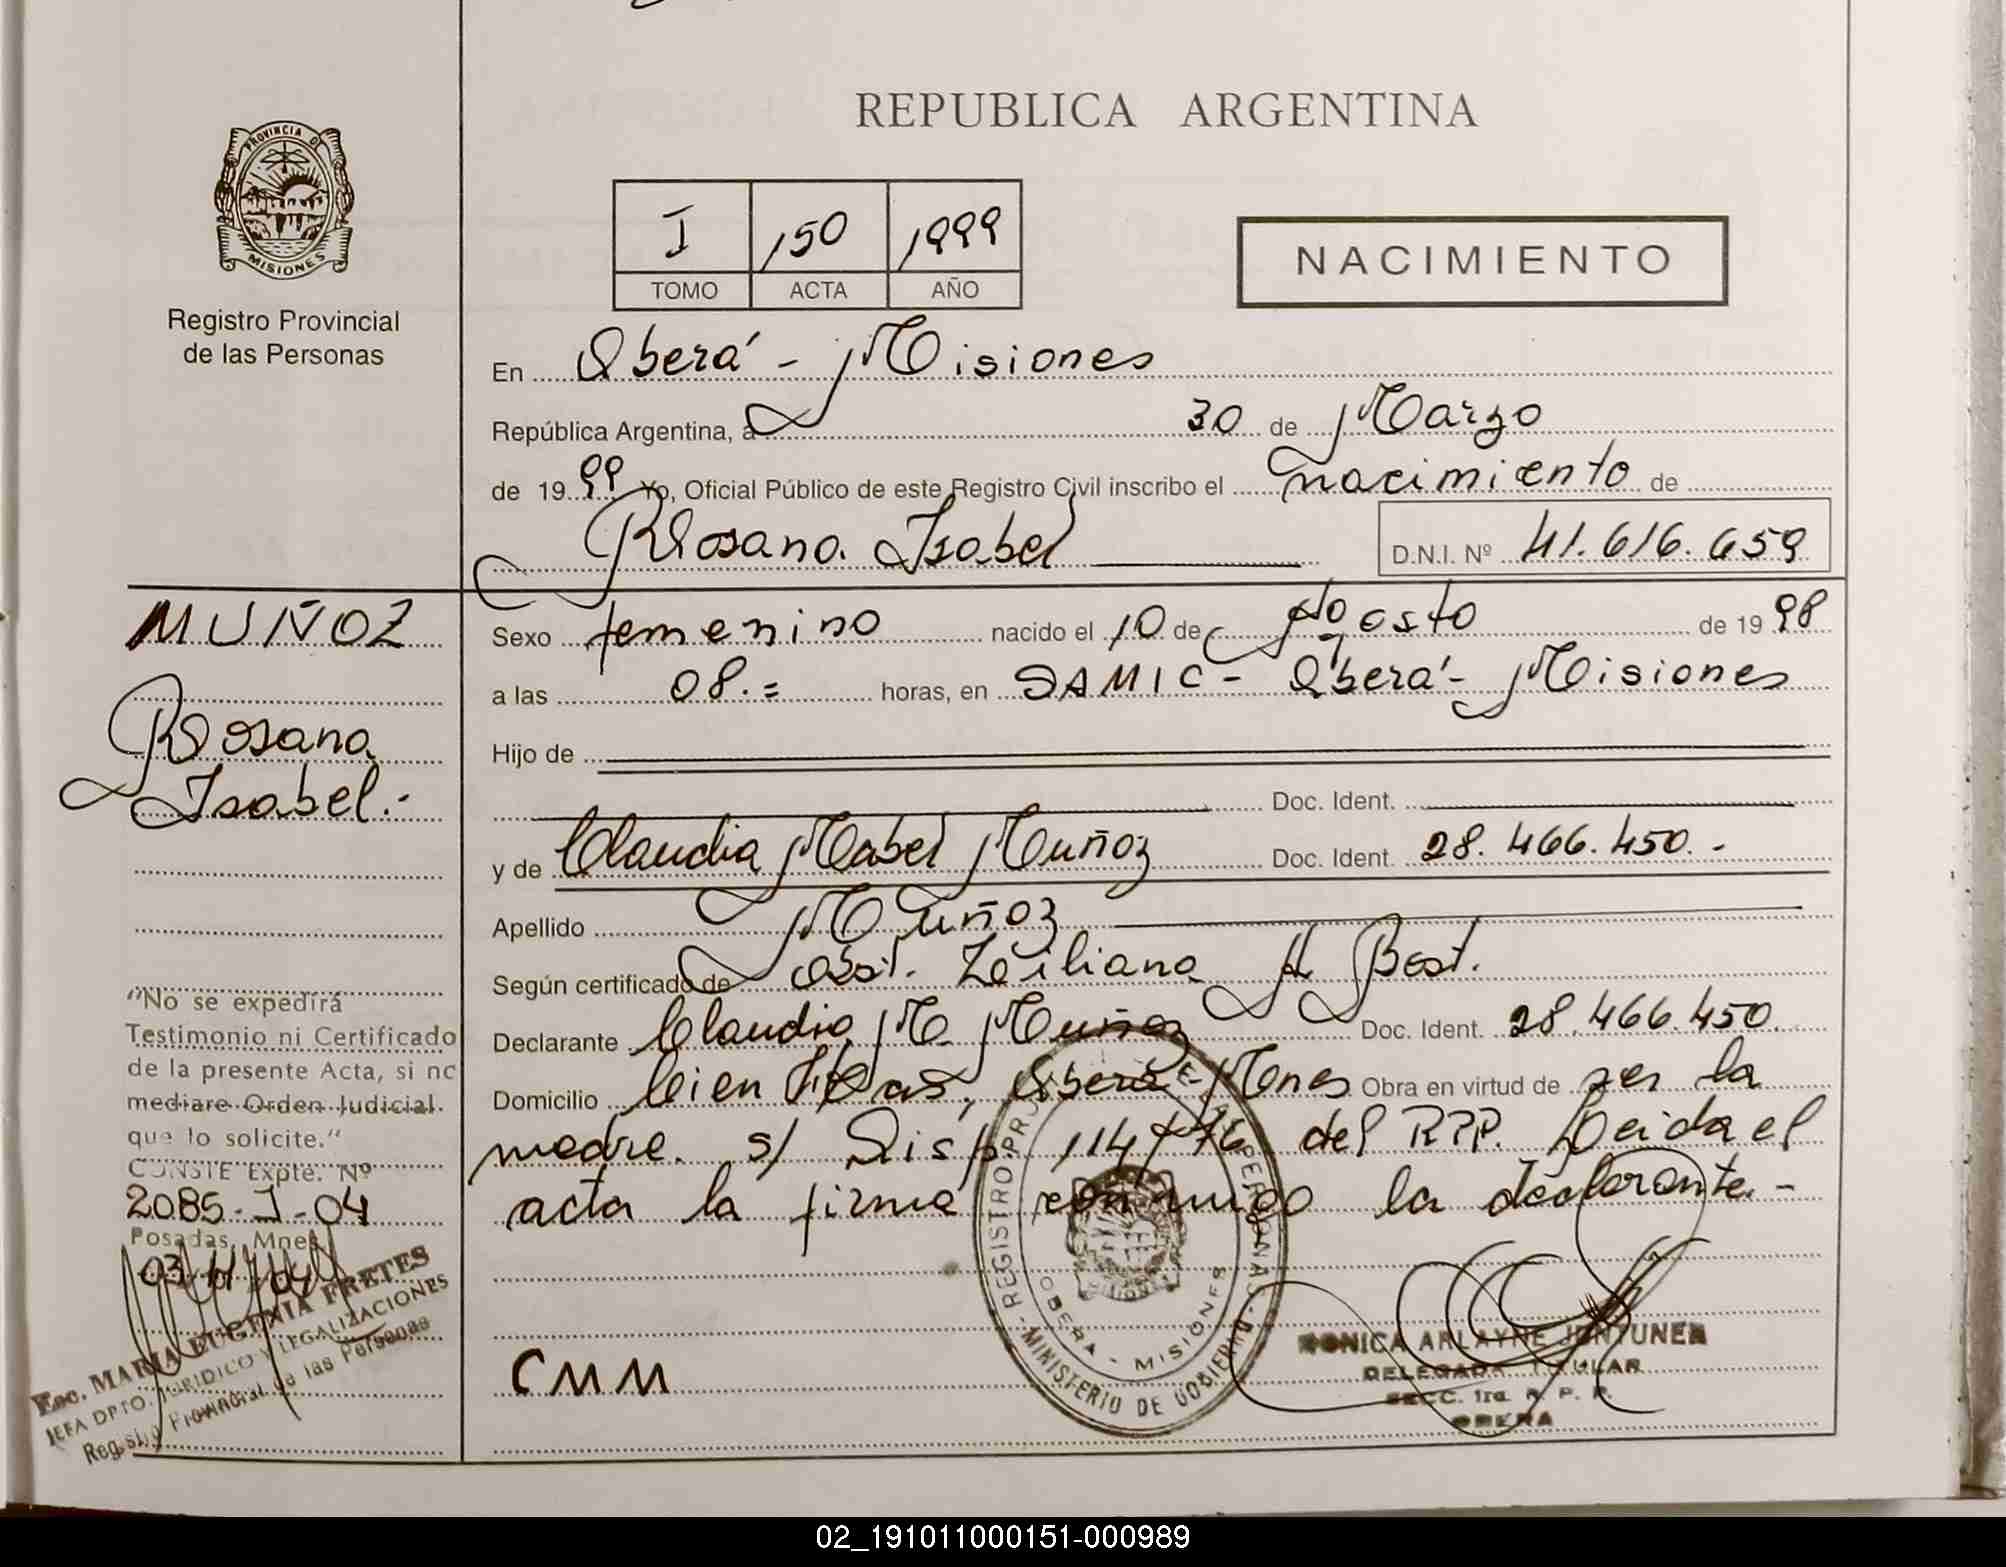 REPUBLICA ARGENTINA
PROVINCIA DE
MISIONES
Registro Provincial
de las Personas
I 150 1999
TOMO ACTA AÑO
NACIMIENTO
En Oberá - Misiones
República Argentina, a 30 de Marzo
de 1999 Yo, Oficial Público de este Registro Civil inscribo el nacimiento de
Rosana Isabel D.N.I. Nº 41.616.659
MUÑOZ
Rosana
Isabel.-
Sexo femenino nacido el 10 de Agosto de 1998
a las 08.= horas, en SAMIC - Oberá - Misiones
Hijo de
Doc. Ident.
y de Claudia Mabel Muñoz Doc. Ident. 28.466.450.-
Apellido Muñoz
Según certificado de Obst. Liliana A Best.
Declarante Claudia M Muñoz Doc. Ident. 28.466.450.
Domicilio Cien Has, Oberá - Mnes Obra en virtud de ser la
madre. s/ Disp. 114/76 del RPP. Leida el
acta la firma conmigo la declarante.-
"No se expedirá
Testimonio ni Certificado
de la presente Acta, si no
mediare Orden Judicial
que lo solicite."
CONSTE Expte. Nº
2085-J-04
Posadas, Mnes
Esc. MARIA EUGENIA FRETES
JEFA DPTO. JURIDICO Y LEGALIZACIONES
Registro Provincial de las Personas
CMM
MINISTERIO DE GOBIERNO
OBERA - MISIONES
MONICA ARLAYNE
DELEGADA TITULAR
SECC. 1ra. R. P. P.
OBERA
02_191011000151-000989